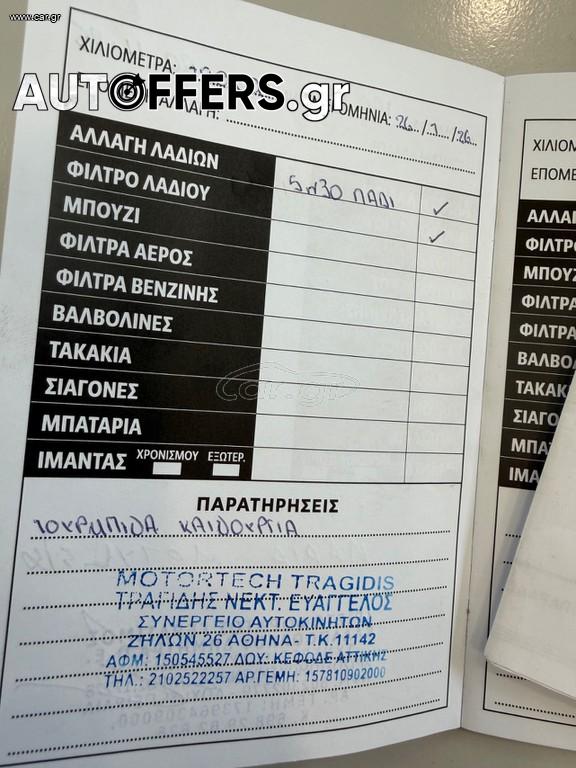 www.car.gr
ΧΙΛΙΟΜΕΤΡΑ:
AUTOFFERS.gr
ΑΛΛΑΓΗ: ΗΜΕΡΟΜΗΝΙΑ: 26/1/26
ΑΛΛΑΓΗ ΛΑΔΙΩΝ 5W30 ΛΑΔΙ ✓
ΦΙΛΤΡΟ ΛΑΔΙΟΥ ✓
ΜΠΟΥΖΙ
ΦΙΛΤΡΑ ΑΕΡΟΣ
ΦΙΛΤΡΑ ΒΕΝΖΙΝΗΣ
ΒΑΛΒΟΛΙΝΕΣ
ΤΑΚΑΚΙΑ
ΣΙΑΓΟΝΕΣ
ΜΠΑΤΑΡΙΑ
ΙΜΑΝΤΑΣ ΧΡΟΝΙΣΜΟΥ ΕΞΩΤΕΡ.
car.gr
ΠΑΡΑΤΗΡΗΣΕΙΣ
ΤΟΥΡΜΠΙΝΑ ΚΑΙΝΟΥΡΓΙΑ
MOTORTECH TRAGIDIS
ΤΡΑΓΙΔΗΣ ΝΕΚΤ. ΕΥΑΓΓΕΛΟΣ
ΣΥΝΕΡΓΕΙΟ ΑΥΤΟΚΙΝΗΤΩΝ
ΖΗΛΩΝ 26 ΑΘΗΝΑ- Τ.Κ. 11142
ΑΦΜ: 150545527 ΔΟΥ: ΚΕΦΟΔΕ ΑΤΤΙΚΗΣ
ΤΗΛ.: 2102522257 ΑΡ.ΓΕΜΗ: 157810902000
ΧΙΛΙΟΜ
ΕΠΟΜΕ
ΑΛΛΑΓ
ΦΙΛΤΡΟ
ΜΠΟΥΖ
ΦΙΛΤΡΑ
ΦΙΛΤΡΑ
ΒΑΛΒΟ
ΤΑΚΑΚ
ΣΙΑΓΟ
ΜΠΑΤ
ΙΜΑ